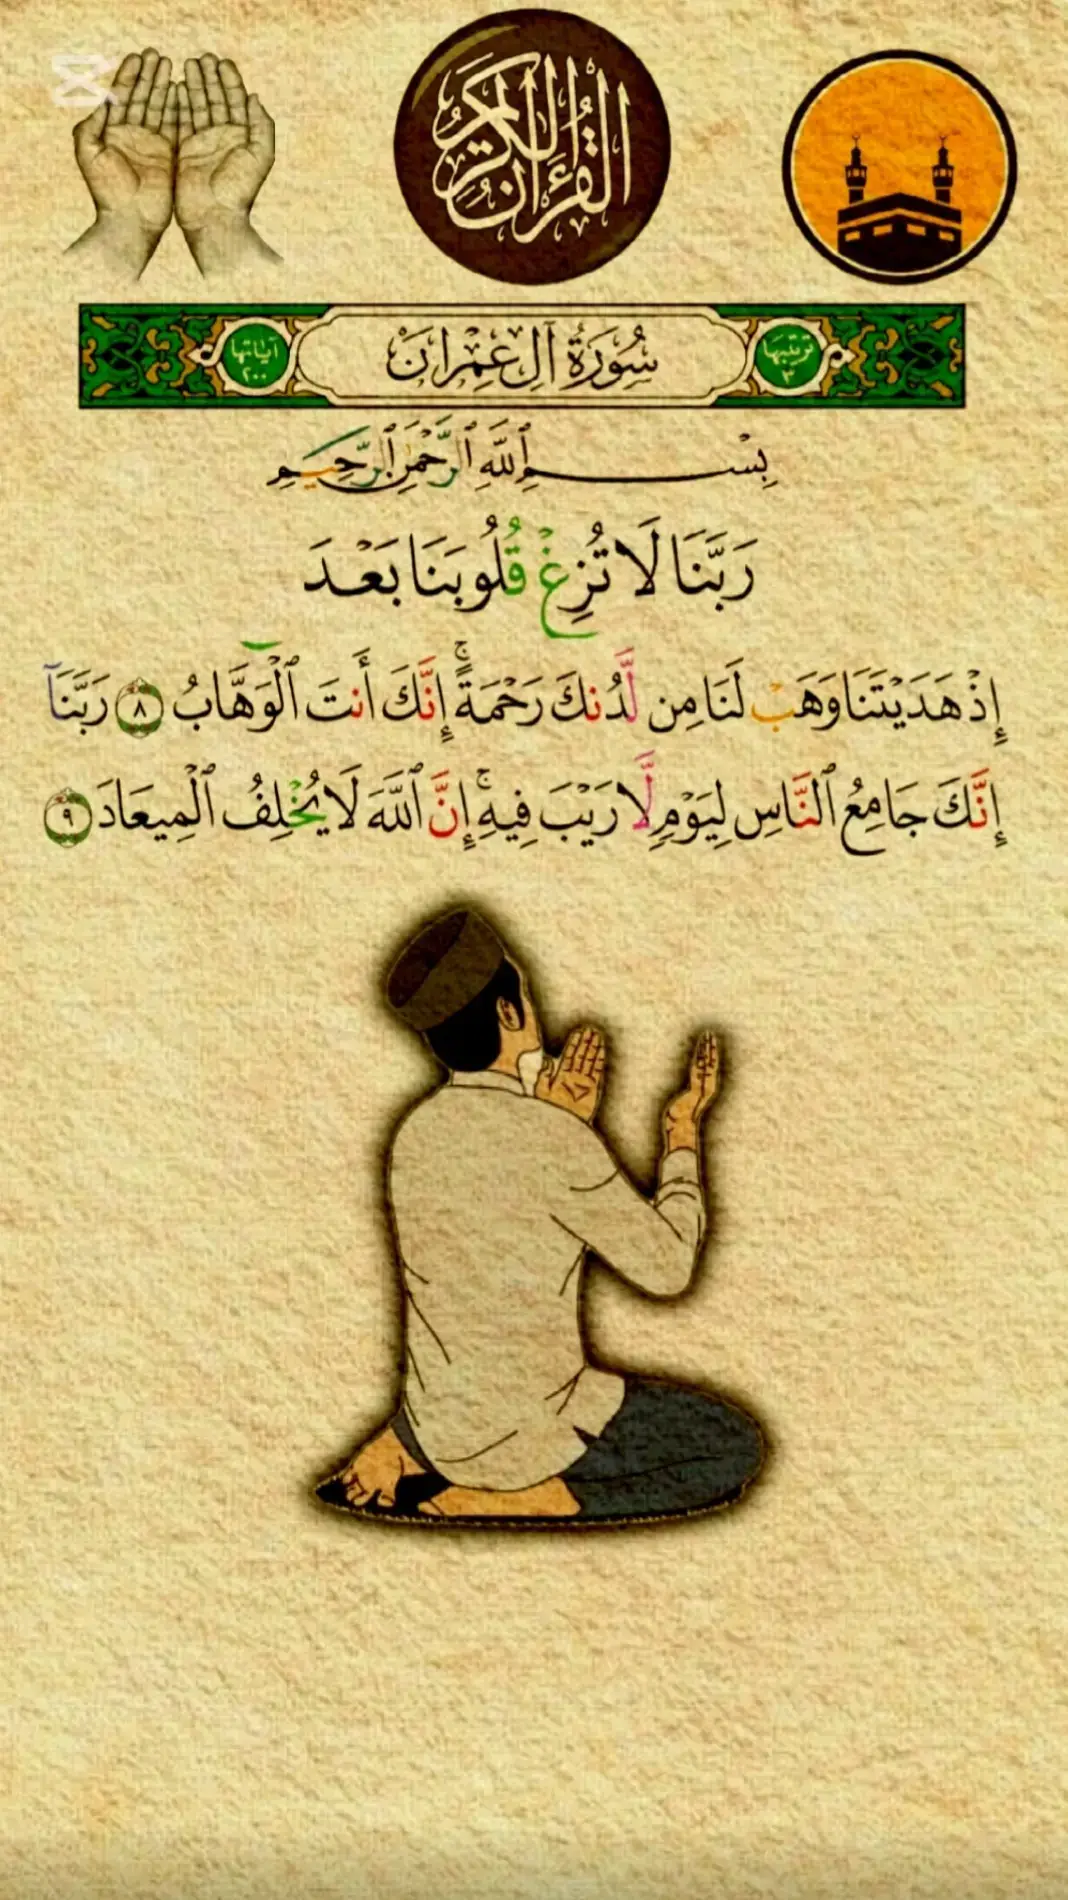 القرآن الكريم
ترتيبها ٣
سُورَةُ آلِ عِمْرَانَ
آياتها ٢٠٠
بِسْمِ ٱللَّهِ ٱلرَّحْمَٰنِ ٱلرَّحِيمِ
رَبَّنَا لَا تُزِغْ قُلُوبَنَا بَعْدَ
إِذْ هَدَيْتَنَا وَهَبْ لَنَا مِن لَّدُنكَ رَحْمَةً ۚ إِنَّكَ أَنتَ ٱلْوَهَّابُ ٨ رَبَّنَآ
إِنَّكَ جَامِعُ ٱلنَّاسِ لِيَوْمٍ لَّا رَيْبَ فِيهِ ۚ إِنَّ ٱللَّهَ لَا يُخْلِفُ ٱلْمِيعَادَ ٩